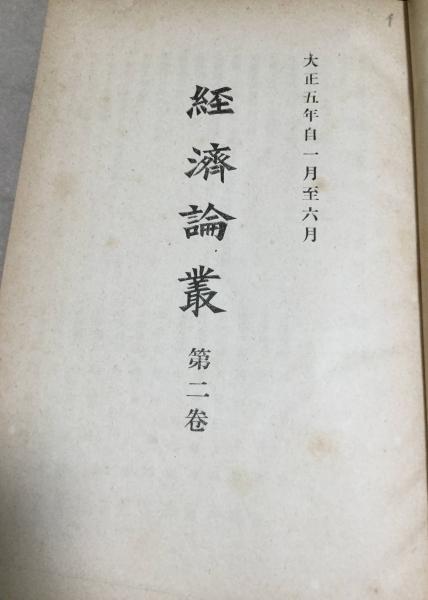 大正五年自一月至六月
經濟論叢 第二卷
1